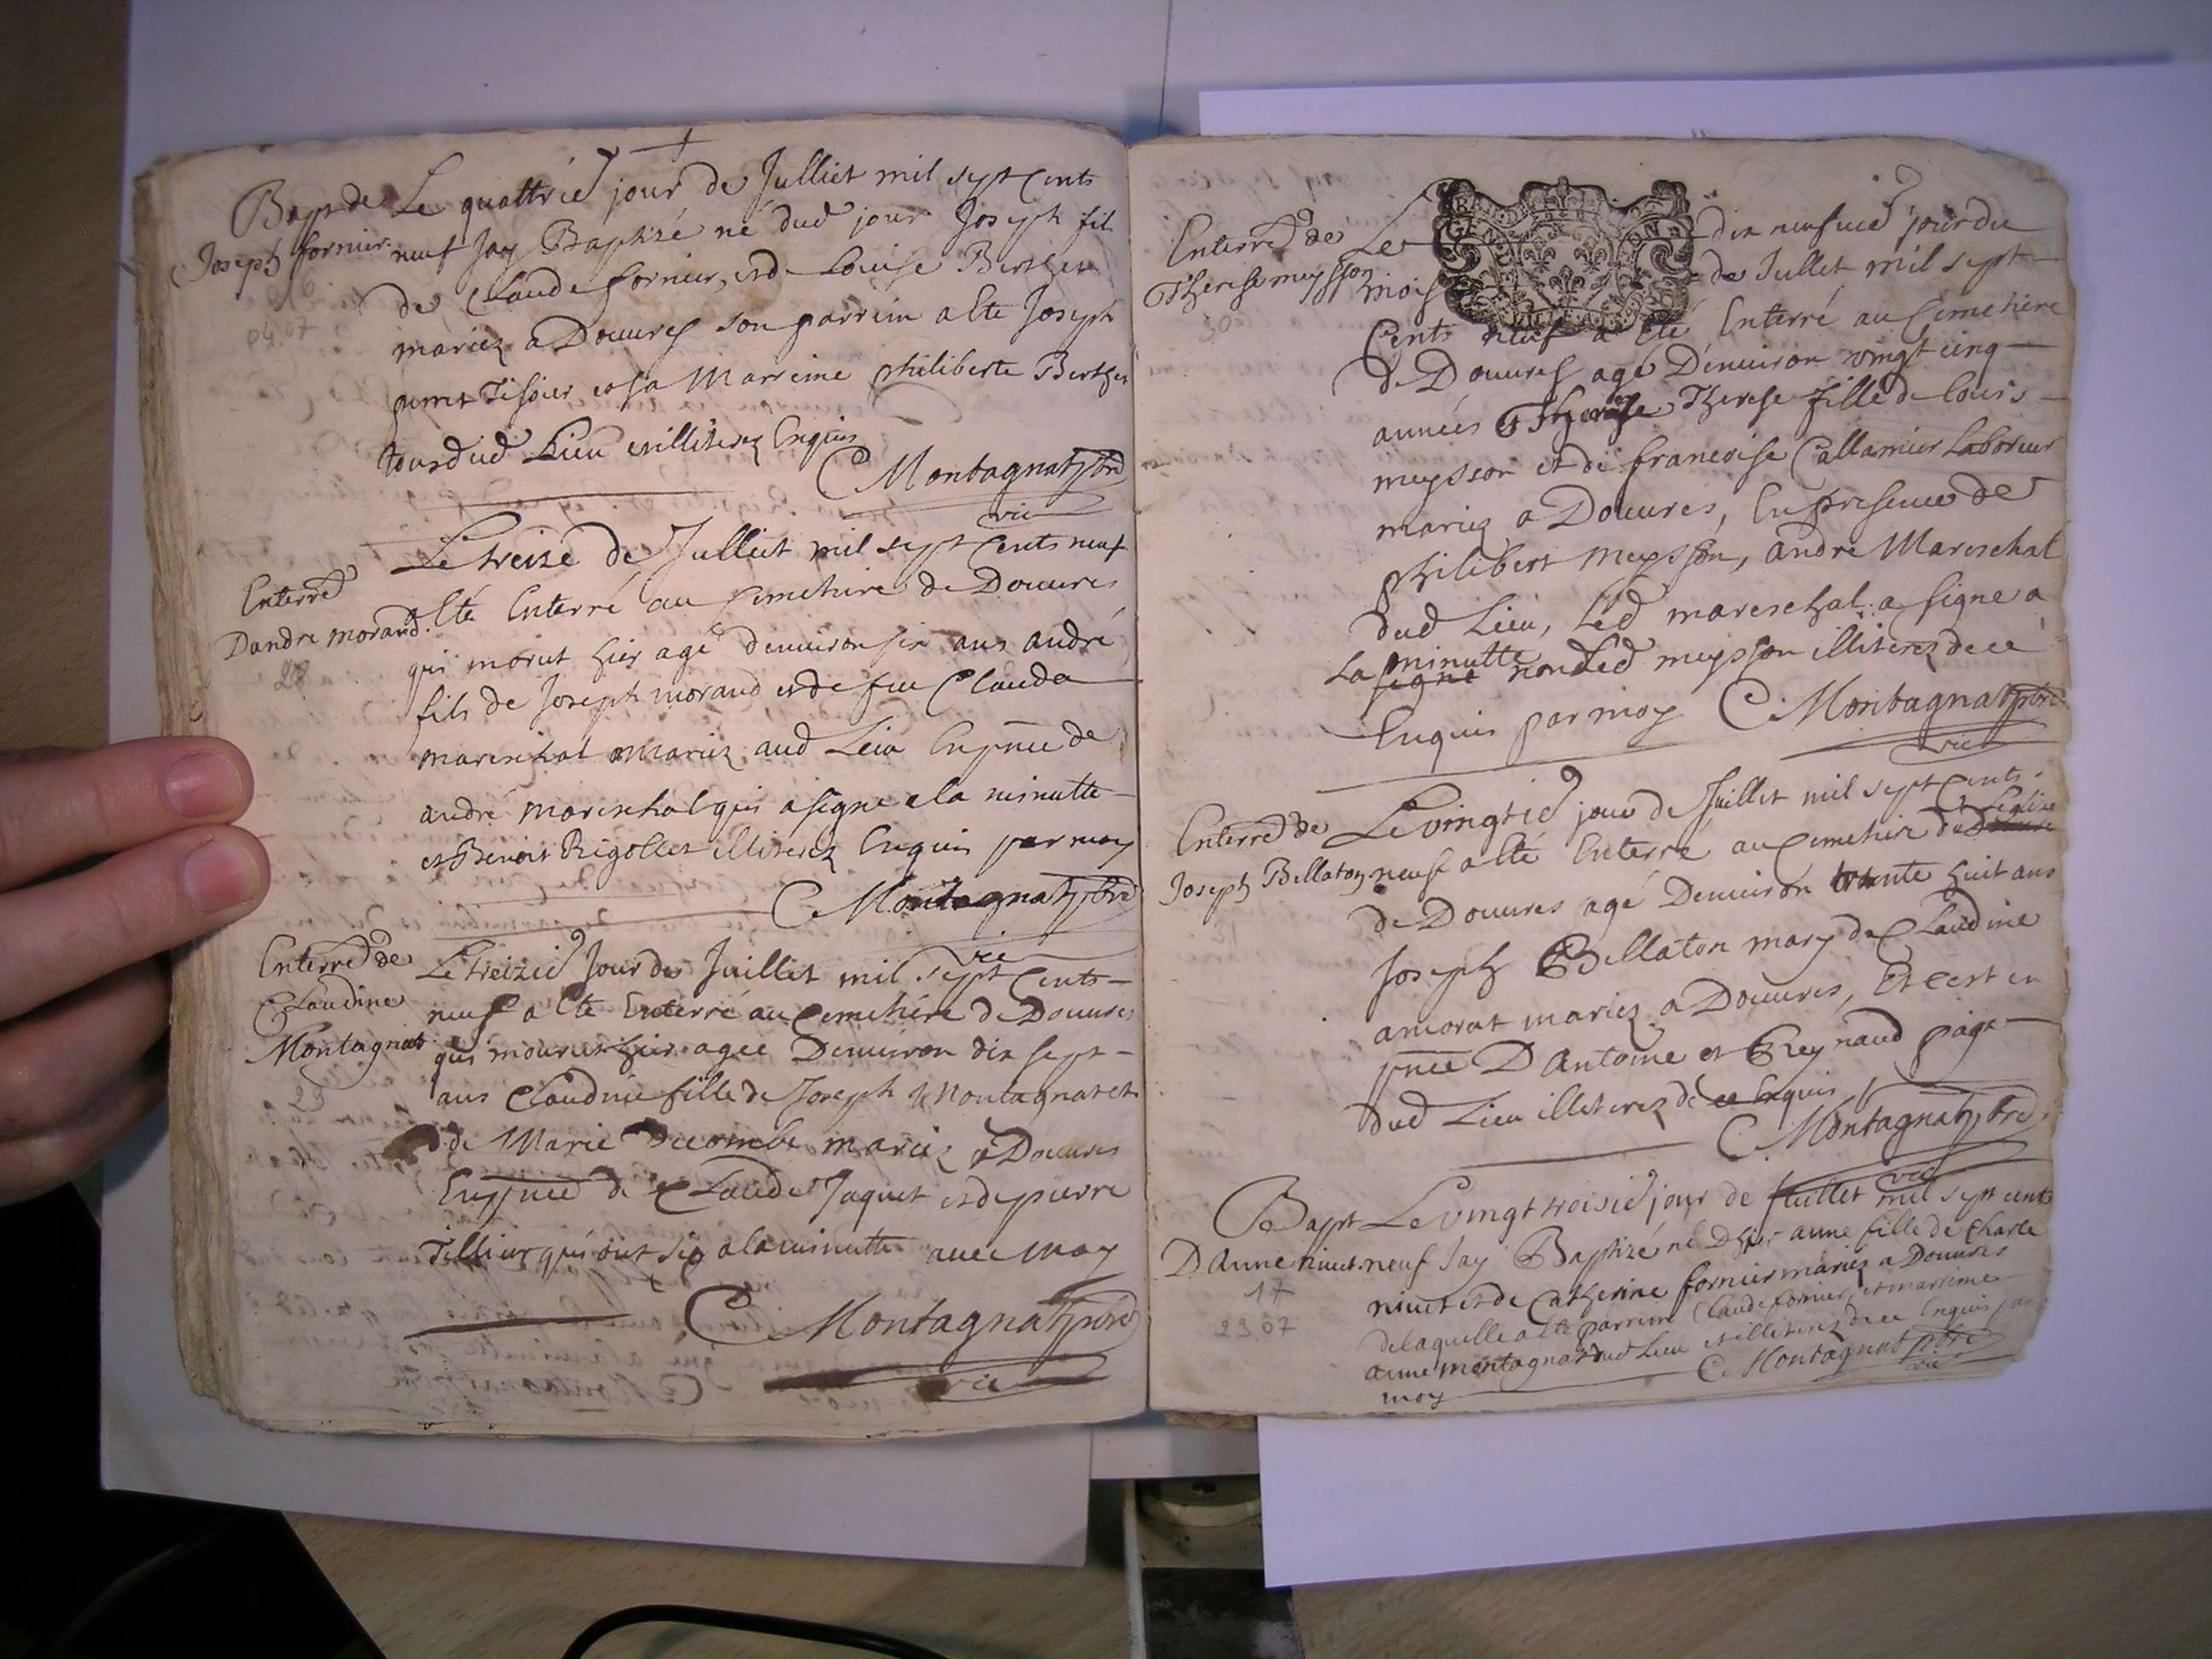 Bapt de
Joseph fornier.
04.07
Le quattrie jour de Julliet mil sept Cents
neuf Jay Baptizé né dud jour Joseph fil
de Claude fornier, et de Louise Berthet
mariez a Douures son parrein a Eté Joseph
Tisier et sa Marreine philiberte Berthet
tous dud Lieu et illiterez Enquis
C Montagnat pbre
vic
Enterré
Dandre morand.
28
Le treize de Julliet mil sept Cents neuf
a Eté Enterré au Cemetiere de Douures
qui morut hier agé denuiron six ans andré
fils de Joseph morand et de feu Clauda
mareschal Mariez aud Leiu En pnce de
andré mareschal qui a signe a la minutte
et Benoit Rigollet illiterez Enquis par moy
C Montagnat pbre
vic
Enterré de
Claudine
Montagnat
29
Le treizie Jour de Juillet mil sept Cents
neuf a Eté Enterré au Cemetiere de Douures
qui mourut hier agee Denuiron dix sept
ans Claudine fille de Joseph Montagnat et
de Marie Decombe mariez a Douures
En pnce de Claude Jaquet et de pierre
Tillier qui ont sig a la minutte auec moy
C Montagnat pbre
vic
Enterré de
Therese meysson
30
Le dix neufuie jour du
mois de Jullet mil sept
Cents neuf a Eté Enterré au Cemetiere
de Douures agé Denuiron vingt cinq
années Therese Therese fille de Louis
meysson et de francoise Callamier Laboreur
mariez a Douures, En presence de
philibert meysson, andre Mareschal
dud Lieu, Led mareschal a signe a
La minutte
signe non Led meysson illiterez de ce
Enquis par moy C Montagnat pbre
vic
Enterré de
Joseph Bellaton
31
Le vingtie jour de Juillet mil sept Cents
neuf a Eté Enterré au Cemetiere de Leglise
de Douures agé Denuiron trente huit ans
Joseph Bellaton mary de Claudine
amorat mariez a Douures, Et cest en
pnce D Antoine et Reynaud page
dud Lieu illiterez de ce Enquis
C Montagnat pbre
vic
Bapt
D Anne niuet.
17
23 07
Le vingt troisie jour de Juillet mil sept cents
neuf Jay Baptizé né Dhier anne fille de Charle
niuet et de Catherine fornier mariez a Douures
de laquelle a Eté parrein Claude fornier, et marreine
anne montagnat dud Lieu et illiterez de ce Enquis par
moy C Montagnat pbre
vic